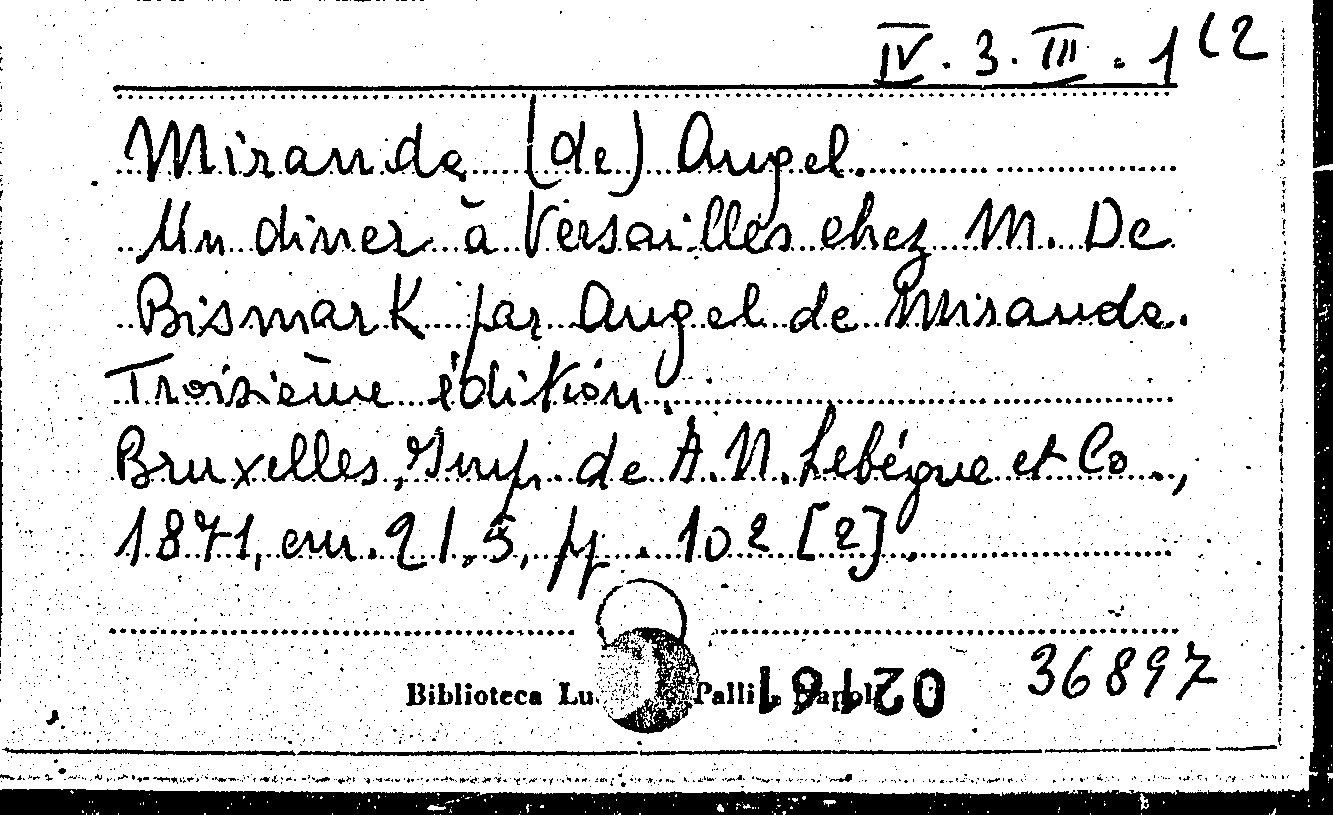 IV. 3. III. 1 (2
Miranda (de) Angel.
Un diner à Versailles chez M. De
Bismark par Angel de Miranda.
Troisième édition.
Bruxelles, Imp. de A. N. Lebégue et Co.,
1871, cm. 21,5, pp. 102 [2].
Biblioteca
36897